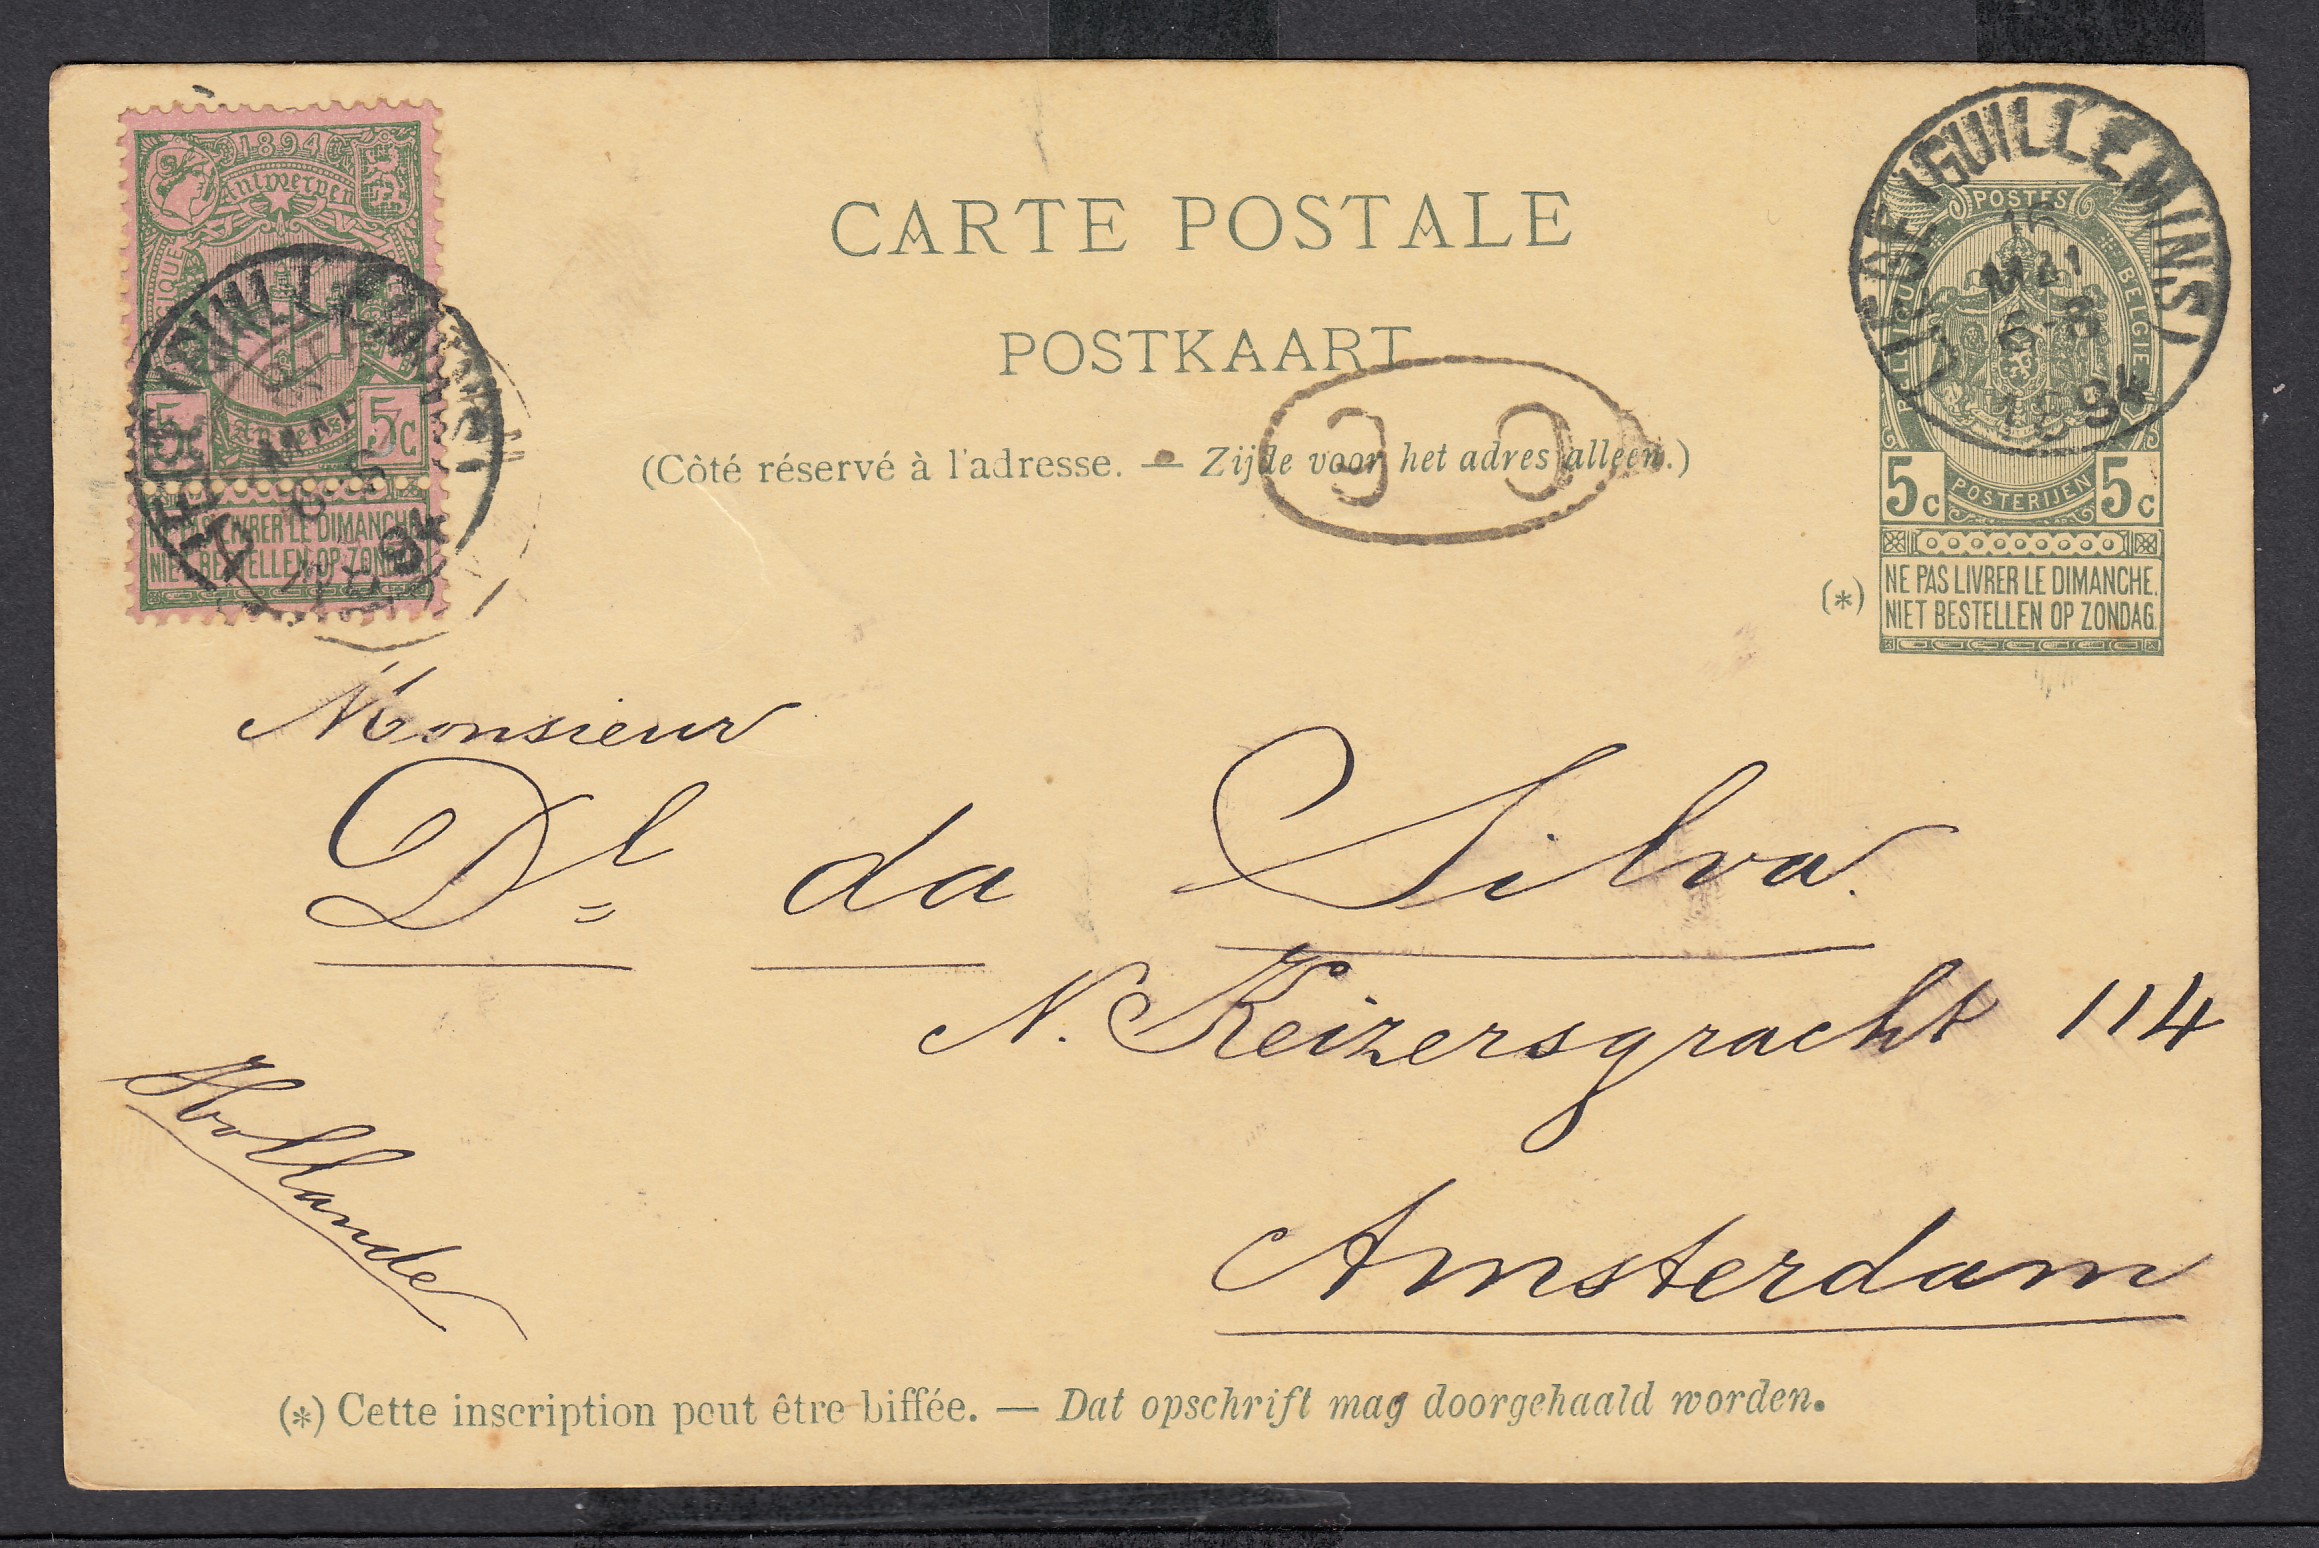 1894
Antwerpen
5 5c
NE PAS LIVRER LE DIMANCHE
NIET BESTELLEN OP ZONDAG
CARTE POSTALE
POSTKAART
(Côté réservé à l'adresse. — Zijde voor het adres alleen.)
LIÈGE (GUILLEMINS)
16
MAI
6-8
1894
POSTES
BELGIQUE BELGIE
5c POSTERIJEN 5c
(*) NE PAS LIVRER LE DIMANCHE.
NIET BESTELLEN OP ZONDAG.
Monsieur
Dl da Silva.
N. Keizersgracht 114
Hollande
Amsterdam
(*) Cette inscription peut être biffée. — Dat opschrift mag doorgehaald worden.